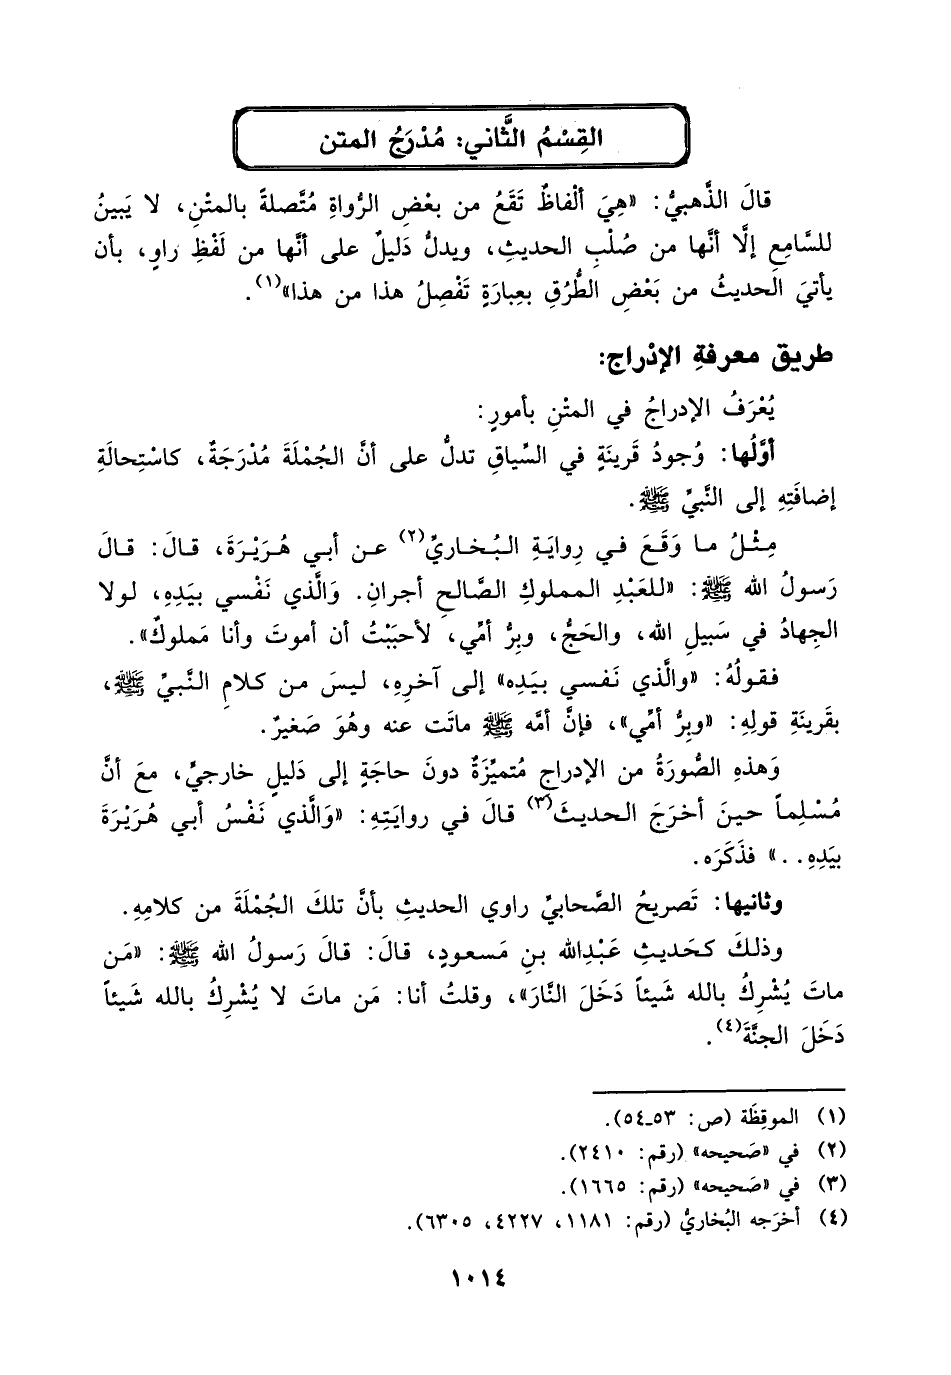 القِسْمُ الثَّاني: مُدْرَجُ المتن
قالَ الذَّهبيُّ: «هِيَ ألْفاظٌ تَقَعُ من بعْضِ الرُّواةِ مُتَّصلةً بالمتْنِ، لا يَبينُ
للسَّامعِ إلَّا أنَّها من صُلْبِ الحديثِ، ويدلُّ دَليلٌ على أنَّها من لَفْظِ راوٍ، بأن
يأتيَ الحديثُ من بَعْضِ الطُّرُقِ بعِبارَةٍ تَفْصِلُ هذا من هذا»(١).
طريق معرفةِ الإدْراجِ:
يُعْرَفُ الإدراجُ في المتْنِ بأمورٍ:
أوَّلُها: وُجودُ قَرينَةٍ في السِّياقِ تدلُّ على أنَّ الجُمْلَةَ مُدْرَجَةٌ، كاسْتِحالَةِ
إضافَتِهِ إلى النَّبيِّ ﷺ.
مِثْلُ ما وَقَعَ في رِوايَةِ البُخاريِّ(٢) عن أبي هُرَيْرَةَ، قالَ: قالَ
رَسولُ الله ﷺ: «للعَبْدِ المملوكِ الصَّالحِ أجرانِ. وَالَّذي نَفْسي بيَدِهِ، لولا
الجِهادُ في سَبيلِ الله، والحَجُّ، وبِرُّ أمِّي، لأحبَبْتُ أن أموتَ وأنا مَملوكٌ».
فقولُهُ: «والَّذي نَفسي بيَدِه» إلى آخرِهِ، ليسَ من كلامِ النَّبيِّ ﷺ،
بقَرينَةِ قولِهِ: «وبِرُّ أمِّي»، فإنَّ أمَّه ﷺ ماتَت عنه وهُوَ صَغيرٌ.
وَهذهِ الصُّورَةُ من الإدراجِ مُتميِّزَةٌ دونَ حاجَةٍ إلى دَليلٍ خارجيٍّ، معَ أنَّ
مُسْلِماً حينَ أخرَجَ الحديثَ(٣) قالَ في روايَتِهِ: «وَالَّذي نَفْسُ أبي هُرَيْرَةَ
بيَدِهِ..» فذَكَرَه.
وثانيها: تَصريحُ الصَّحابيِّ راوي الحديثِ بأنَّ تلكَ الجُمْلَةَ من كلامِهِ.
وذلكَ كحَديثِ عَبْدِالله بنِ مَسعودٍ، قالَ: قالَ رَسولُ الله ﷺ: «مَن
ماتَ يُشْرِكُ بالله شَيئاً دَخَلَ النَّارَ»، وقلتُ أنا: مَن ماتَ لا يُشْرِكُ بالله شَيئاً
دَخَلَ الجنَّةَ(٤).
(١) الموقِظَة (ص: ٥٣ـ٥٤).
(٢) في «صَحيحه» (رقم: ٢٤١٠).
(٣) في «صَحيحه» (رقم: ١٦٦٥).
(٤) أخرَجه البُخاريُّ (رقم: ١١٨١، ٤٢٢٧، ٦٣٠٥).
١٠١٤